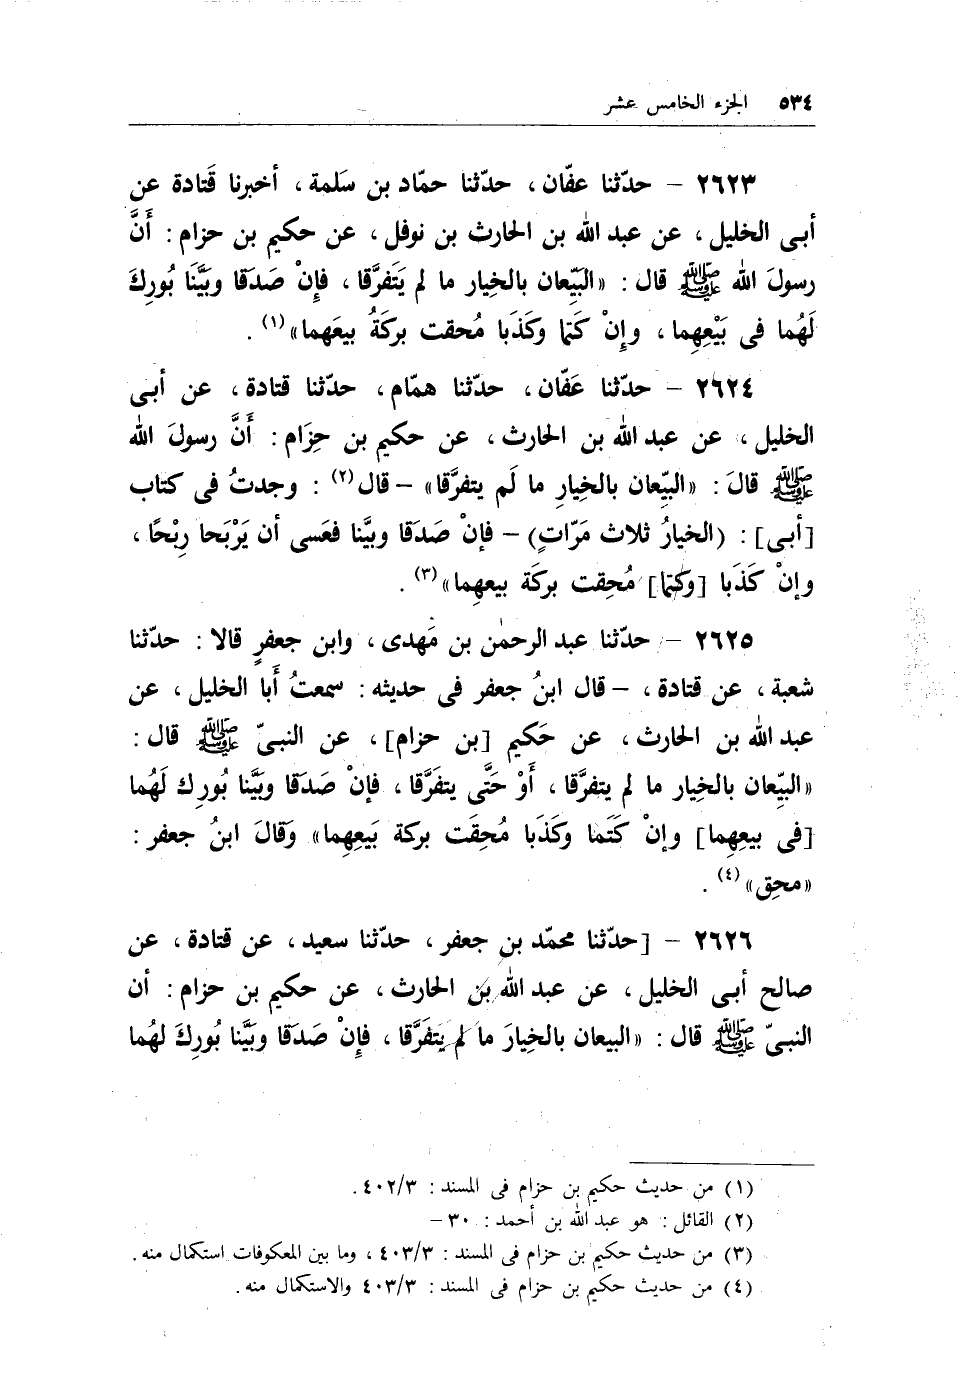 ٥٣٤ الجزء الخامس عشر
٢٦٢٣ – حدّثنا عفّان، حدّثنا حمّاد بن سَلمة، أخبرنا قَتادة عن
أبى الخليل، عن عبد الله بن الحارث بن نوفل، عن حكيم بن حزام: أَنَّ
رسولَ الله ﷺ قال: «البَيِّعان بالخِيار ما لم يَتَفرَّقا، فإِنْ صَدَقا وبَيَّنَا بُورِكَ
لَهُما فى بَيْعِهِما، وإِنْ كَتَما وكَذَبا مُحقت بركَةُ بيعَهما»(١).
٢٦٢٤ – حدّثنا عَفّان، حدّثنا همّام، حدّثنا قتادة، عن أبى
الخليل، عن عبد الله بن الحارث، عن حكيم بن حِزَام: أَنَّ رسولَ الله
ﷺ قالَ: «البيّعان بالخِيارِ ما لَم يتفرَّقا» – قال(٢): وجدتُ فى كتاب
[أبى]: (الخيارُ ثلاث مَرّاتٍ) – فإنْ صَدَقا وبيَّنا فعَسى أن يَرْبَحا رِبْحًا،
وإنْ كَذَبا [وكتما] مُحِقت بركَة بيعهِما»(٣).
٢٦٢٥ – حدّثنا عبد الرحمٰن بن مَهدى، وابن جعفرٍ قالا: حدّثنا
شعبة، عن قتادة، – قال ابنُ جعفر فى حديثه: سمعتُ أَبا الخليل، عن
عبد الله بن الحارث، عن حَكيم [بن حزام]، عن النبىّ ﷺ قال:
«البيِّعان بالخِيار ما لم يتفرَّقا، أَوْ حَتَّى يتفَرَّقا، فإنْ صَدَقا وبَيَّنا بُورك لَهُما
[فى بيعِهِما] وإنْ كَتَما وكَذَبا مُحِقَت بركة بَيعِهِما» وَقالَ ابنُ جعفر:
«محِق»(٤).
٢٦٢٦ – [حدّثنا محمّد بن جعفر، حدّثنا سعيد، عن قتادة، عن
صالح أبى الخليل، عن عبد الله بن الحارث، عن حكيم بن حزام: أن
النبىّ ﷺ قال: «البيعان بالخِيارَ ما لم يتفَرَّقا، فإِنْ صَدَقا وبَيَّنا بُورِكَ لهُما
(١) من حديث حكيم بن حزام فى المسند: ٤٠٢/٣.
(٢) القائل: هو عبد الله بن أحمد: ٣٠ –
(٣) من حديث حكيم بن حزام فى المسند: ٤٠٣/٣، وما بين المعكوفات استكمال منه.
(٤) من حديث حكيم بن حزام فى المسند: ٤٠٣/٣ والاستكمال منه.